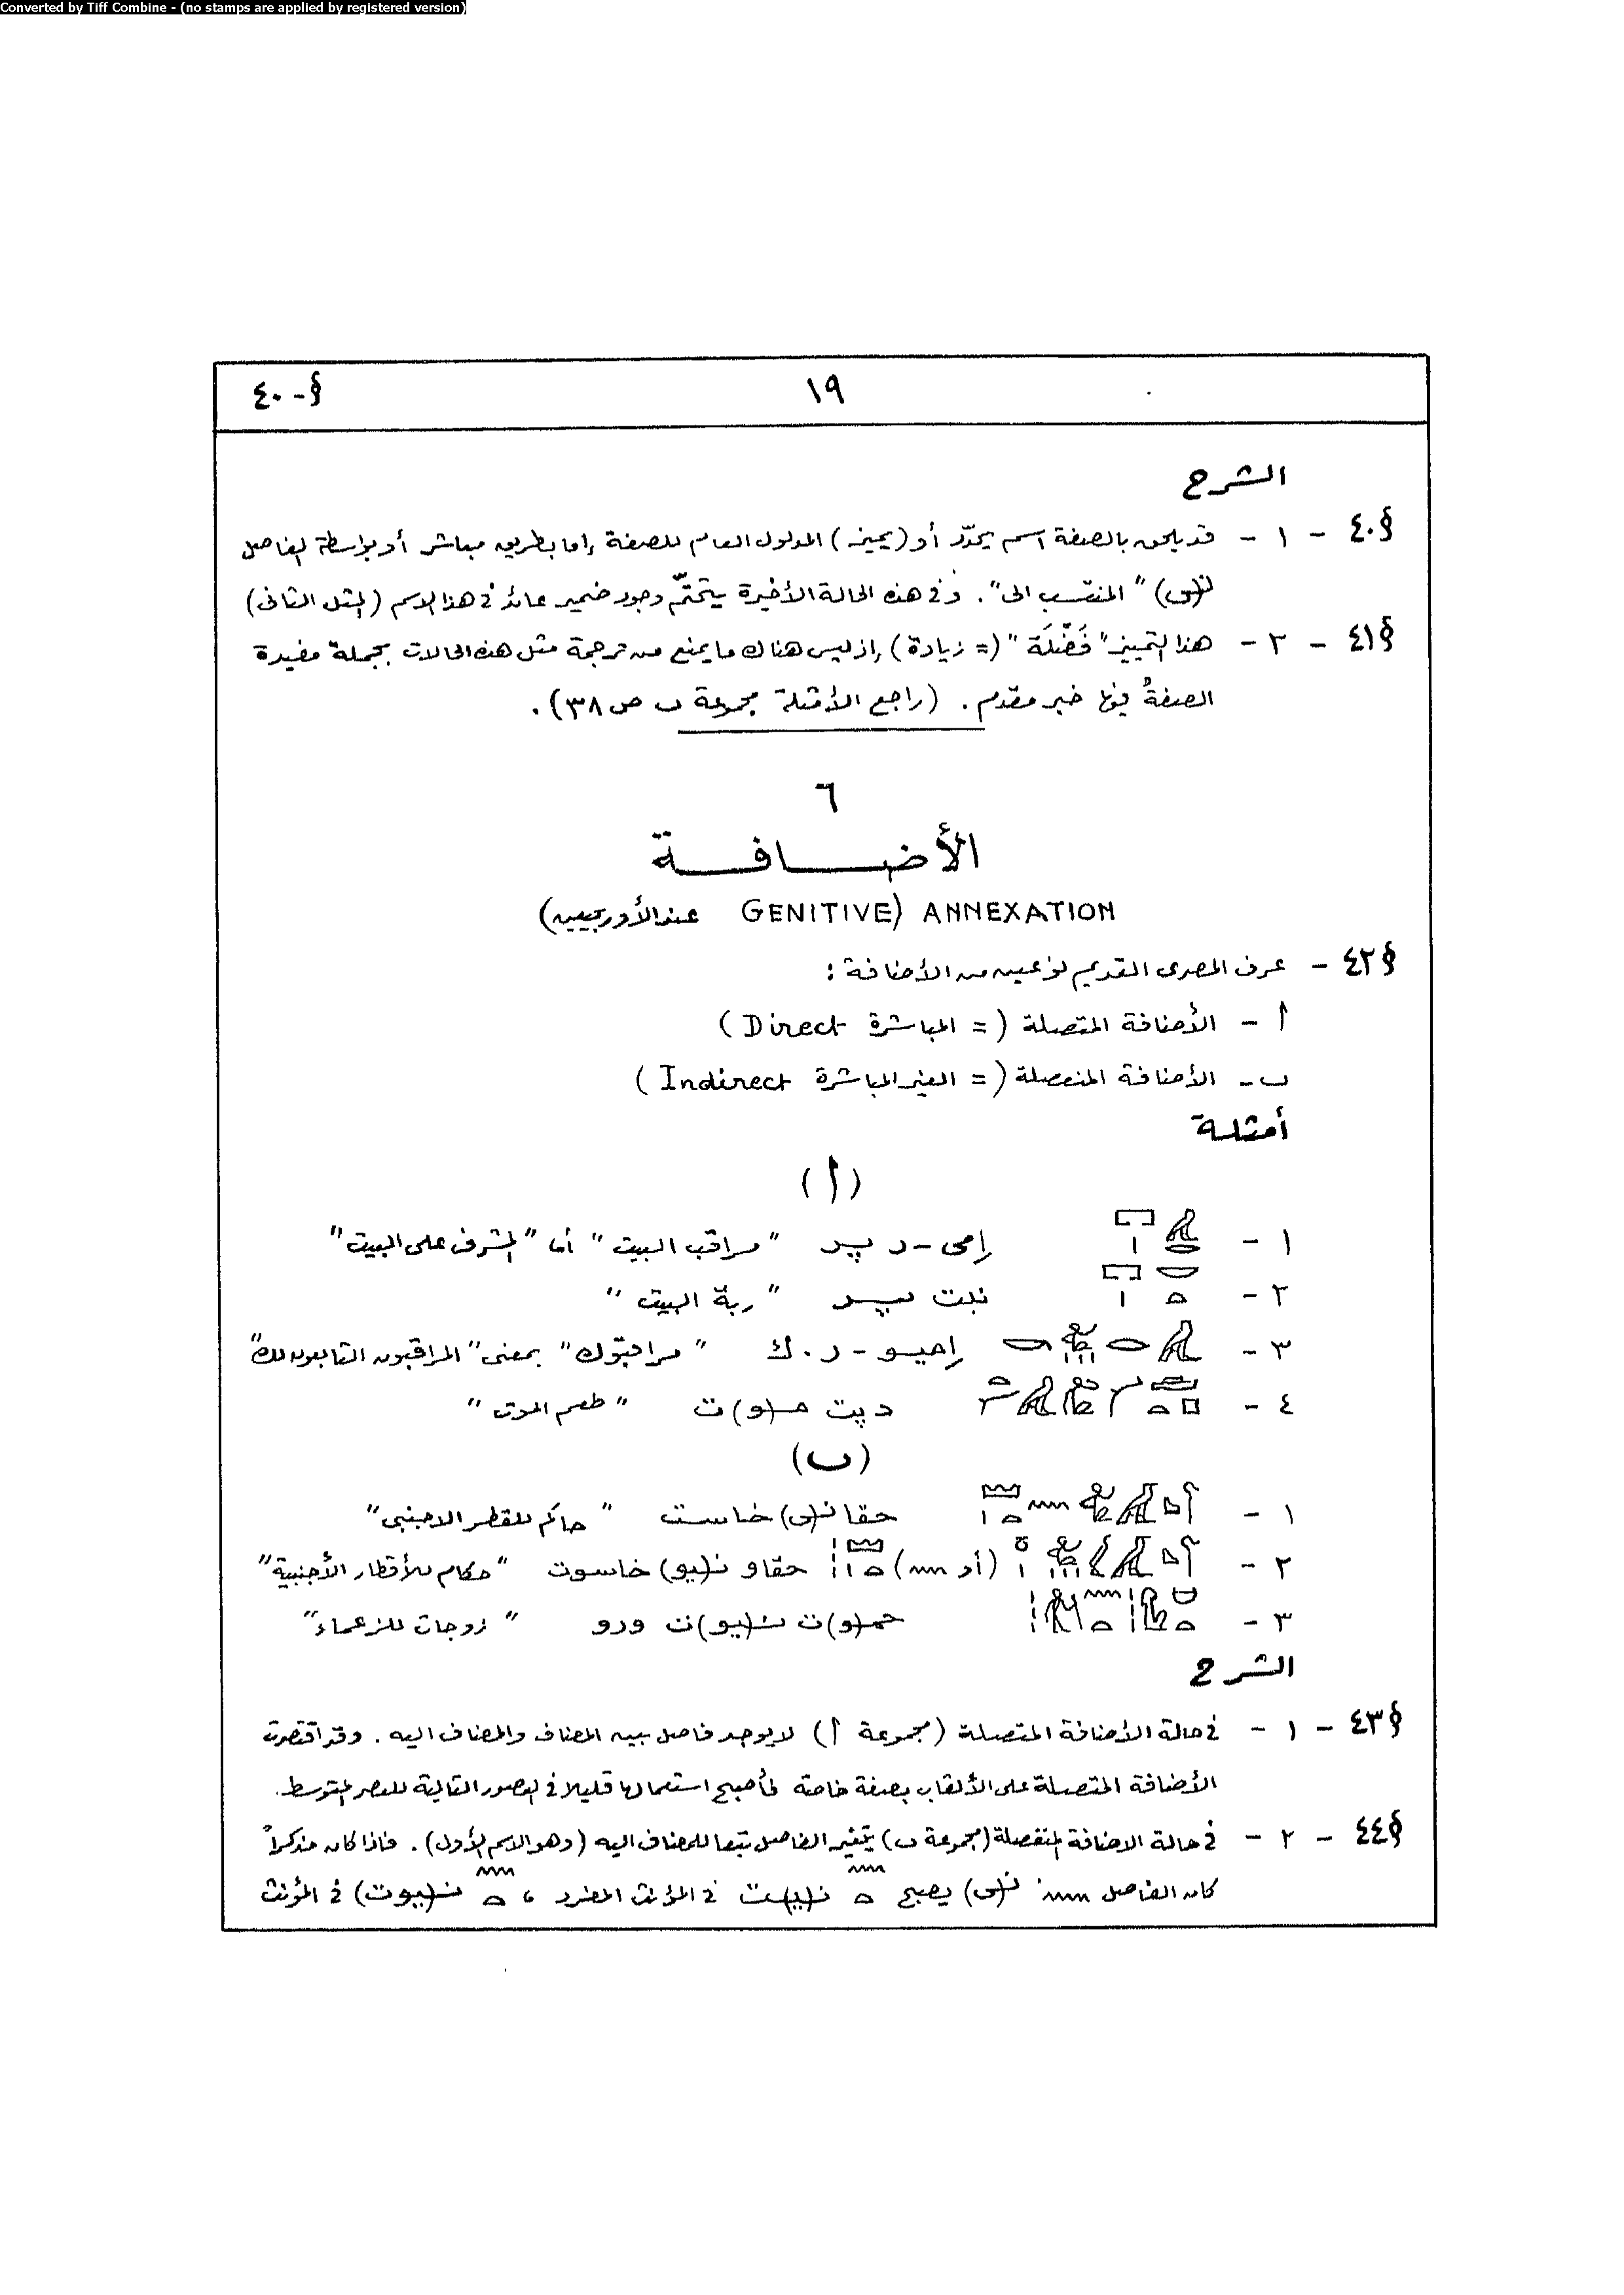 Converted by Tiff Combine - (no stamps are applied by registered version)
§ - ٤٠
١٩
الشرح
§٤٠ - ١ - قد يلحق بالصفة اسم يحدّد أو (يميز) المدلول العام للصفة إما بطريق مباشر أو بواسطة الفاصل
ن(ى) "المنتسب الى". وفى هذه الحالة الأخيرة يتحتّم وجود ضمير عائد فى هذا الاسم (المثل الثانى)
§٤١ - ٢ - هذا التمييز "فَضْلَة" (= زيادة) إذ ليس هناك ما يمنع من ترجمة مثل هذه الحالات بجملة مفيدة
الصفةُ فيها خبر مقدم. (راجع الأمثلة مجموعة ب ص ٣٨).
٦
الأضافة
ANNEXATION (GENITIVE عند الأوربيين)
§٤٢ - عرف المصرى القديم نوعين من الأضافة:
أ - الأضافة المتصلة (= المباشرة Direct)
ب - الأضافة المنفصلة (= الغير المباشرة Indirect)
أمثلة
(أ)
١ - إمى-ر پر "مراقب البيت" أما "المشرف على البيت"
٢ - نبت پر "ربة البيت"
٣ - إميو-ر.ك "مراقبوك" بمعنى "المراقبون التابعون لك"
٤ - دپت م(و)ت "طعم الموت"
(ب)
١ - حقا ن(ى) خاست "حاكم للقطر الاجنبى"
٢ - (أو) حقاو ن(يو) خاسوت "حكام للأقطار الأجنبية"
٣ - حم(و)ت ن(يو)ت ورو "زوجات للزعماء"
الشرح
§٤٣ - ١ - فى حالة الأضافة المتصلة (مجموعة أ) لا يوجد فاصل بين المضاف والمضاف اليه. وقد اقتصرت
الأضافة المتصلة على الألقاب بصفة خاصة فأصبح استعمالها قليلا فى العصور التالية للعصر المتوسط.
§٤٤ - ٢ - فى حالة الاضافة المنفصلة (مجموعة ب) يتغير الفاصل تبعا للمضاف اليه (وهو الاسم الأول). فاذا كان مذكراً
كان الفاصل ن(ى) يصبح ن(ي)ت فى المؤنث المفرد، ن(يوت) فى المؤنث